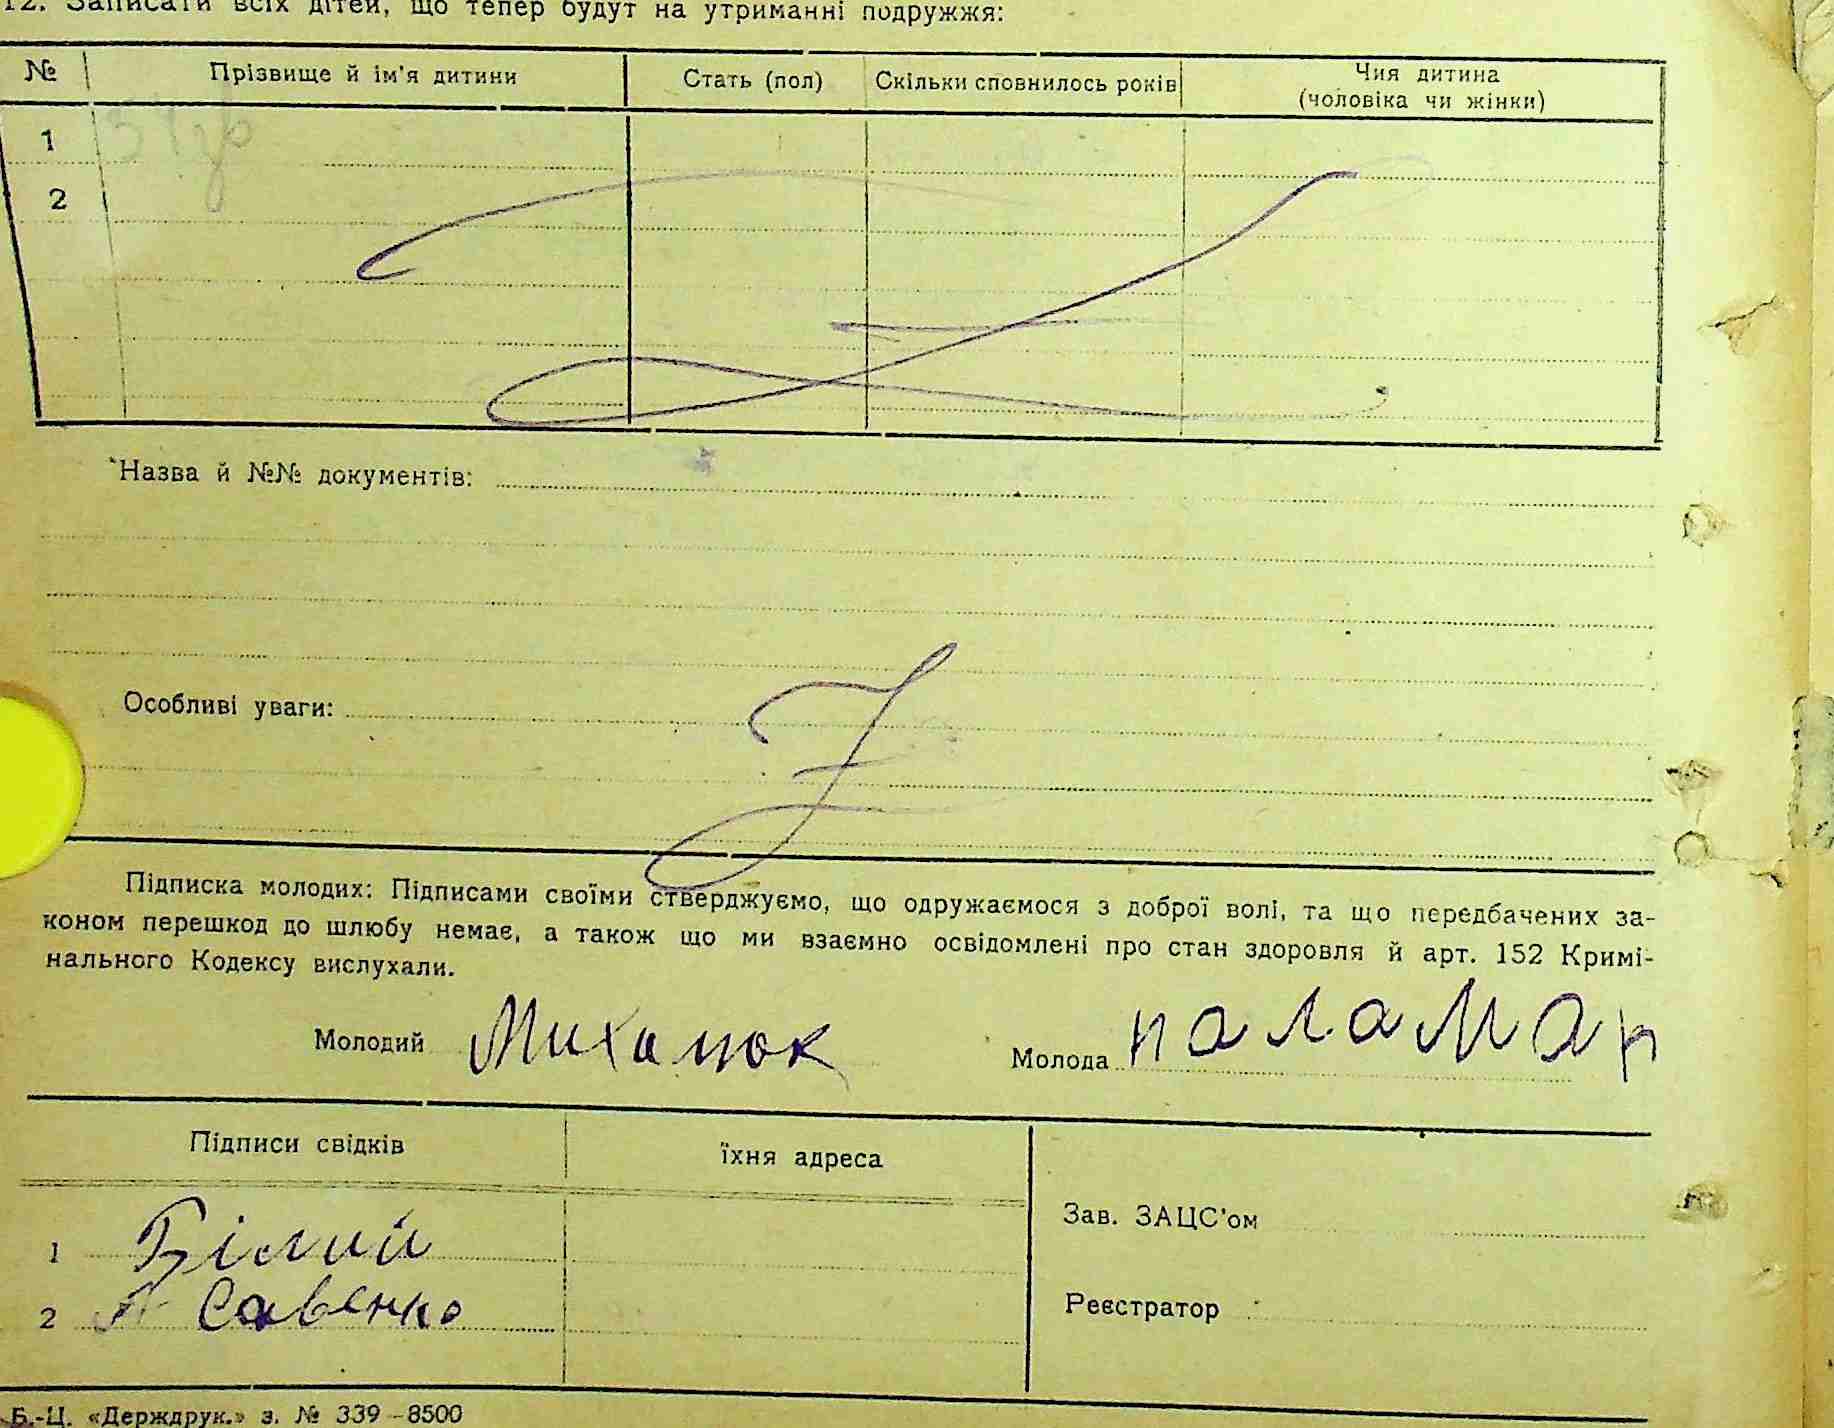 12. Записати всіх дітей, що тепер будут на утриманні подружжя:
№ Прізвище й ім'я дитини Стать (пол) Скільки сповнилось років Чия дитина (чоловіка чи жінки)
1
2
Назва й №№ документів:
Особливі уваги:
Підписка молодих: Підписами своїми стверджуємо, що одружаємося з доброї волі, та що передбачених за-
коном перешкод до шлюбу немає, а також що ми взаємно освідомлені про стан здоровля й арт. 152 Кримі-
нального Кодексу вислухали.
Молодий Миханюк Молода паламар
Підписи свідків їхня адреса
Зав. ЗАЦС'ом
1 Білий
Реєстратор
2 Савенко
Б.-Ц. «Держдрук.» з. № 339-8500